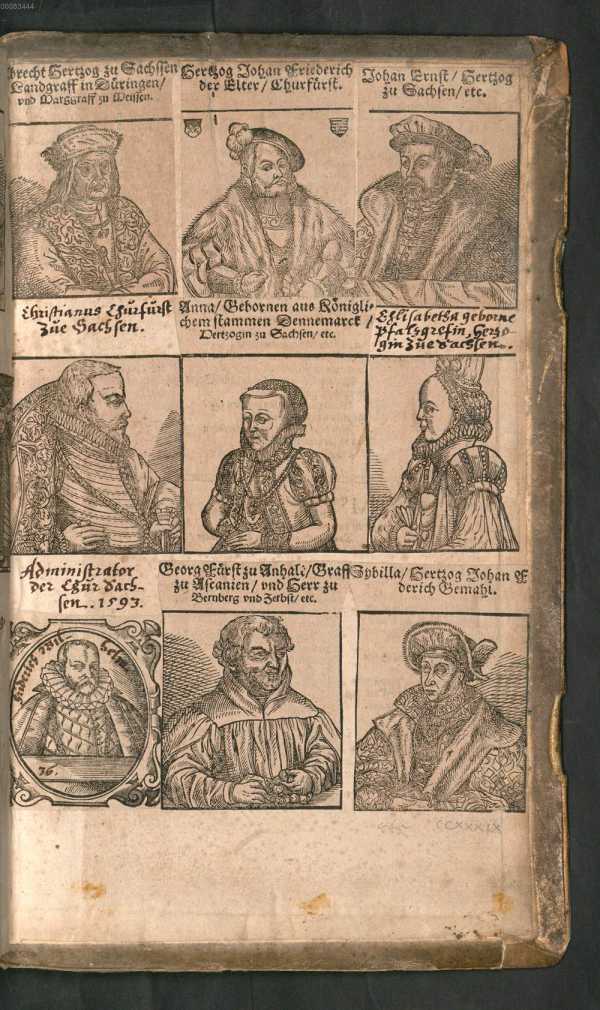 00083444
brecht Hertzog zu Sachssen
Landgraff in Düringen/
vnd Marggraff zu Meissen.
Hertzog Johan Friederich
der Elter/ Churfürst.
Johan Ernst/ Hertzog
zu Sachsen/ etc.
Christianus Churfürst
Zůe Sachsen.
Anna/ Gebornen aus Königli-
chem stammen Dennemarck/
Hertzogin zu Sachsen/ etc.
Elisabetha geborne
Pfaltzgrefin, Hertzo-
gin Zůe Sachssen.
Administrator
der Chur Sach-
sen. 1593.
Georg Fürst zu Anhalt/ Graff
zu Ascanien/ vnd Herr zu
Bernberg vnd Zerbst/ etc.
Sybilla/ Hertzog Johan F
derich Gemahl.
36.
CCXXXIX